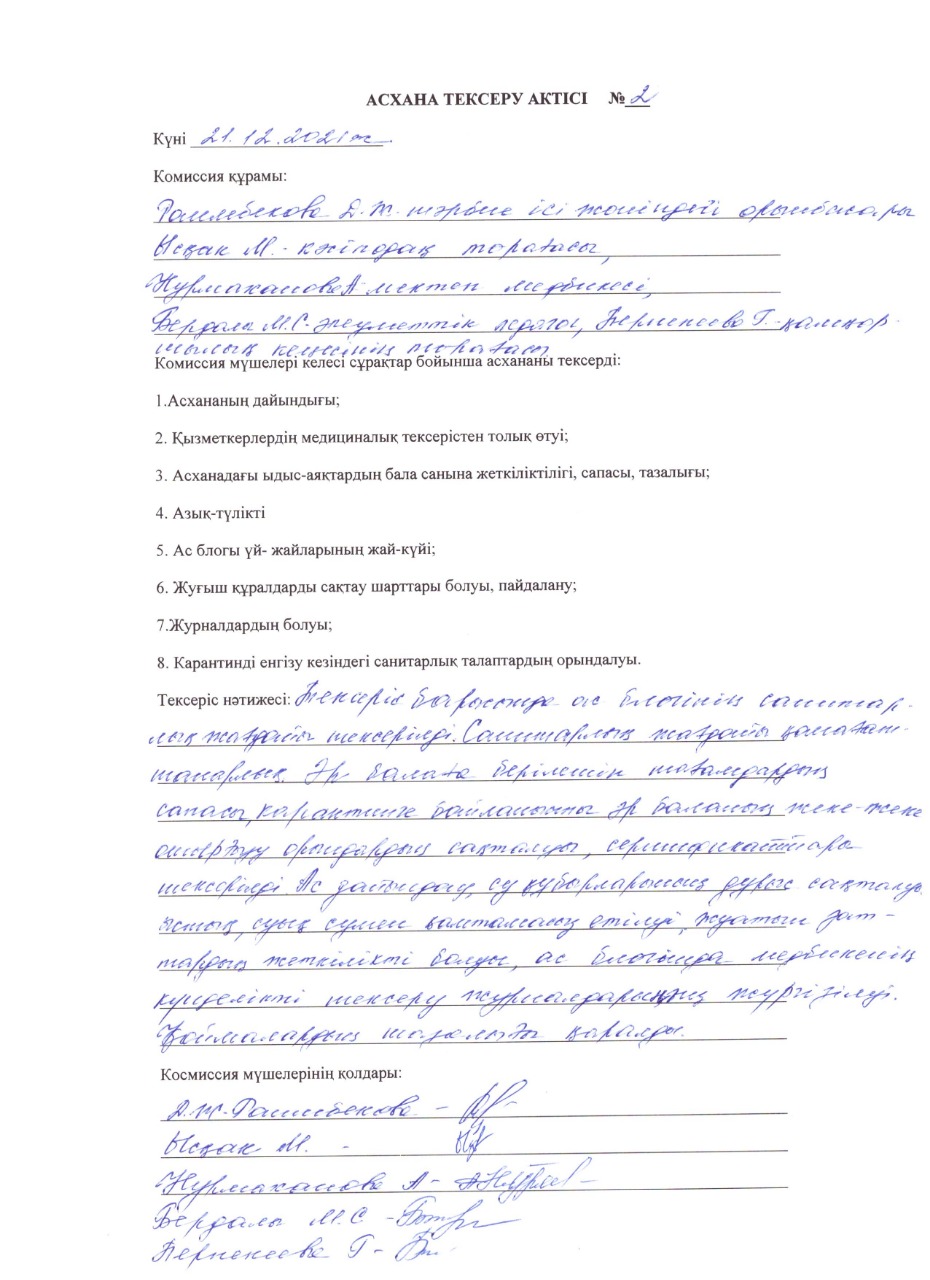 АСХАНА ТЕКСЕРУ АКТІСІ №2
Күні 21.12.2021ж.
Комиссия құрамы:
Раимбекова Д.Ж. тәрбие ісі жөніндегі орынбасары
Ысқақ М. - кәсіподақ төрағасы,
Нурмаханова А мектеп медбикесі,
Бердалы М.С - әлеуметтік педагог, Бернекеева Г. - қамқор-
шылық кеңесінің төрағасы
Комиссия мүшелері келесі сұрақтар бойынша асхананы тексерді:
1.Асхананың дайындығы;
2. Қызметкерлердің медициналық тексерістен толық өтуі;
3. Асханадағы ыдыс-аяқтардың бала санына жеткіліктілігі, сапасы, тазалығы;
4. Азық-түлікті
5. Ас блогы үй- жайларының жай-күйі;
6. Жуғыш құралдарды сақтау шарттары болуы, пайдалану;
7.Журналдардың болуы;
8. Карантинді енгізу кезіндегі санитарлық талаптардың орындалуы.
Тексеріс нәтижесі: Тексеріс барысында ас блогінің санитар-
лық жағдайы тексерілді. Санитарлық жағдайы қанағат-
танарлық. Әр балаға берілетін тағамдардың
сапасы, карантинге байланысты әр баланың жеке-жеке
отырғызу орындардың сақталуы, сертификаттары
тексерілді. Ас дайындау, су құбырларының дұрыс сақталуы
ыстық, суық сумен қамтамасыз етілуі, жуатын зат-
тардың жеткілікті болуы, ас блогында медбикенің
күнделікті тексеру журналдарының жүргізілуі.
Қоймалардың тазалығы қаралды.
Космиссия мүшелерінің қолдары:
Д.Ж. Раимбекова -
Ысқақ М. -
Нурмаханова А -
Бердалы М.С -
Бернекеева Г -